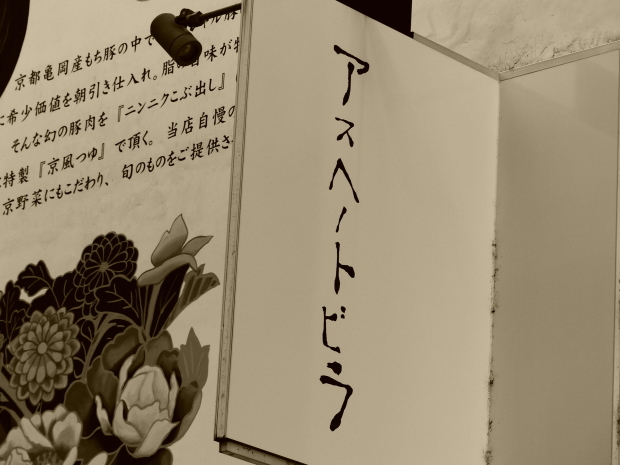 京都亀岡産もち豚の中で
に希少価値を朝引き仕入れ。脂の旨味が
そんな幻の豚肉を『ニンニクこぶ出し』
特製『京風つゆ』で頂く。当店自慢の
京野菜にもこだわり、旬のものをご提供さ
アスヘノトビラ